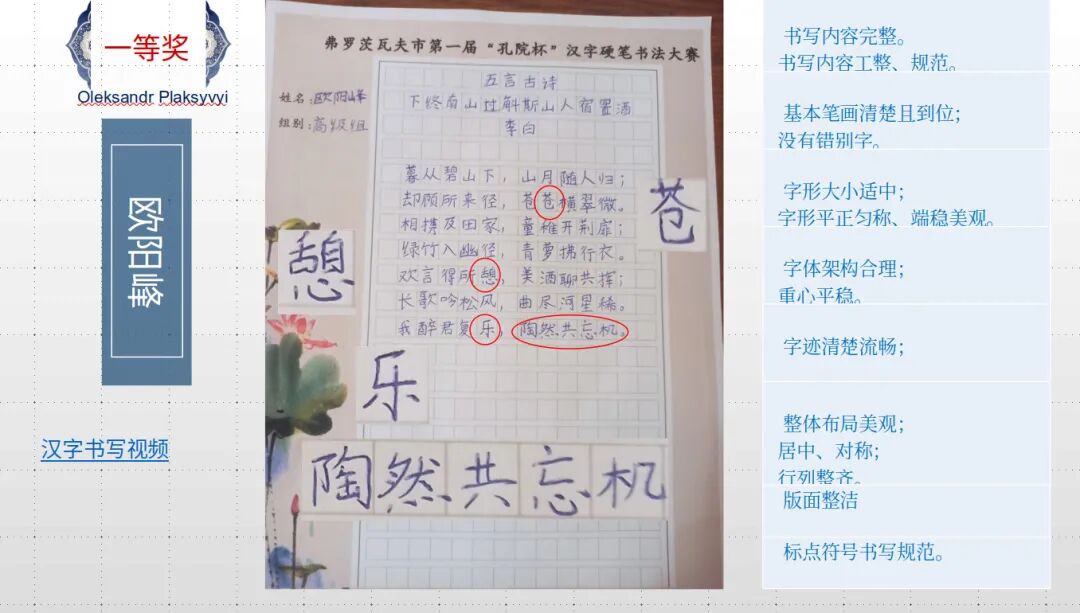 一等奖
Oleksandr Plaksyvyi
欧阳峰
汉字书写视频
弗罗茨瓦夫市第一届“孔院杯”汉字硬笔书法大赛
姓名:欧阳峰
组别:高级组
五言古诗
下终南山过斛斯山人宿置酒
李白
暮从碧山下，山月随人归；
却顾所来径，苍苍横翠微。
相携及田家，童稚开荆扉；
绿竹入幽径，青萝拂行衣。
欢言得所憩，美酒聊共挥；
长歌吟松风，曲尽河星稀。
我醉君复乐，陶然共忘机。
苍
憩
乐
陶然共忘机
书写内容完整。
书写内容工整、规范。
基本笔画清楚且到位；
没有错别字。
字形大小适中；
字形平正匀称、端稳美观。
字体架构合理；
重心平稳。
字迹清楚流畅；
整体布局美观；
居中、对称；
行列整齐。
版面整洁
标点符号书写规范。